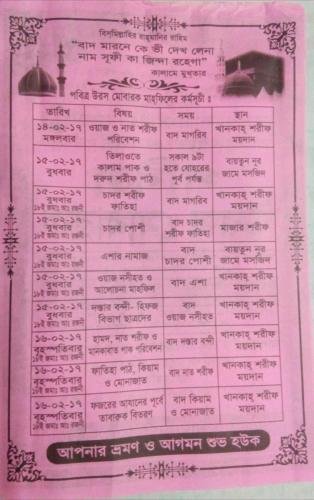 বিসমিল্লাহির রাহমানির রাহিম
"বাদ মারনে কে ভী দেখ লেনা
নাম সূফী কা জিন্দা রহেগা"
কালামে মুখতার
পবিত্র উরস মোবারক মাহফিলের কর্মসূচী ঃ
তারিখ বিষয় সময় স্থান
১৪-০২-১৭ মঙ্গলবার ওয়াজ ও নাত শরীফ পরিবেশন বাদ মাগরিব খানকাহ্ শরীফ ময়দান
১৫-০২-১৭ বুধবার তিলাওতে কালাম পাক ও দরুদ শরীফ পাঠ সকাল ৯টা হতে যোহরের পূর্ব পর্যন্ত বায়তুন নুর জামে মসজিদ
১৫-০২-১৭ বুধবার চাদর শরীফ ফাতিহা বাদ মাগরিব খানকাহ্ শরীফ ময়দান
১৫-০২-১৭ বুধবার চাদর পোশী বাদ চাদর শরীফ ফাতিহা মাজার শরীফ
১৫-০২-১৭ বুধবার এশার নামাজ বাদ চাদর পোশী বায়তুন নুর জামে মসজিদ
১৫-০২-১৭ বুধবার ওয়াজ নসীহত ও আলোচনা মাহফিল বাদ এশা খানকাহ্ শরীফ ময়দান
১৫-০২-১৭ বুধবার দস্তার বন্দী- হিফজ বিভাগ ছাত্রদের বাদ ওয়াজ নসীহত খানকাহ্ শরীফ ময়দান
১৬-০২-১৭ বৃহস্পতিবার হামদ, নাত শরীফ ও মানকাবাত পাক পরিবেশন বাদ দস্তার বন্দী খানকাহ্ শরীফ ময়দান
১৬-০২-১৭ বৃহস্পতিবার ফাতিহা পাঠ, কিয়াম ও মোনাজাত বাদ নাত শরীফ খানকাহ্ শরীফ ময়দান
১৬-০২-১৭ বৃহস্পতিবার ফজরের আযানের পূর্বে তাবারুক বিতরণ বাদ কিয়াম ও মোনাজাত খানকাহ্ শরীফ ময়দান
আপনার ভ্রমণ ও আগমন শুভ হউক